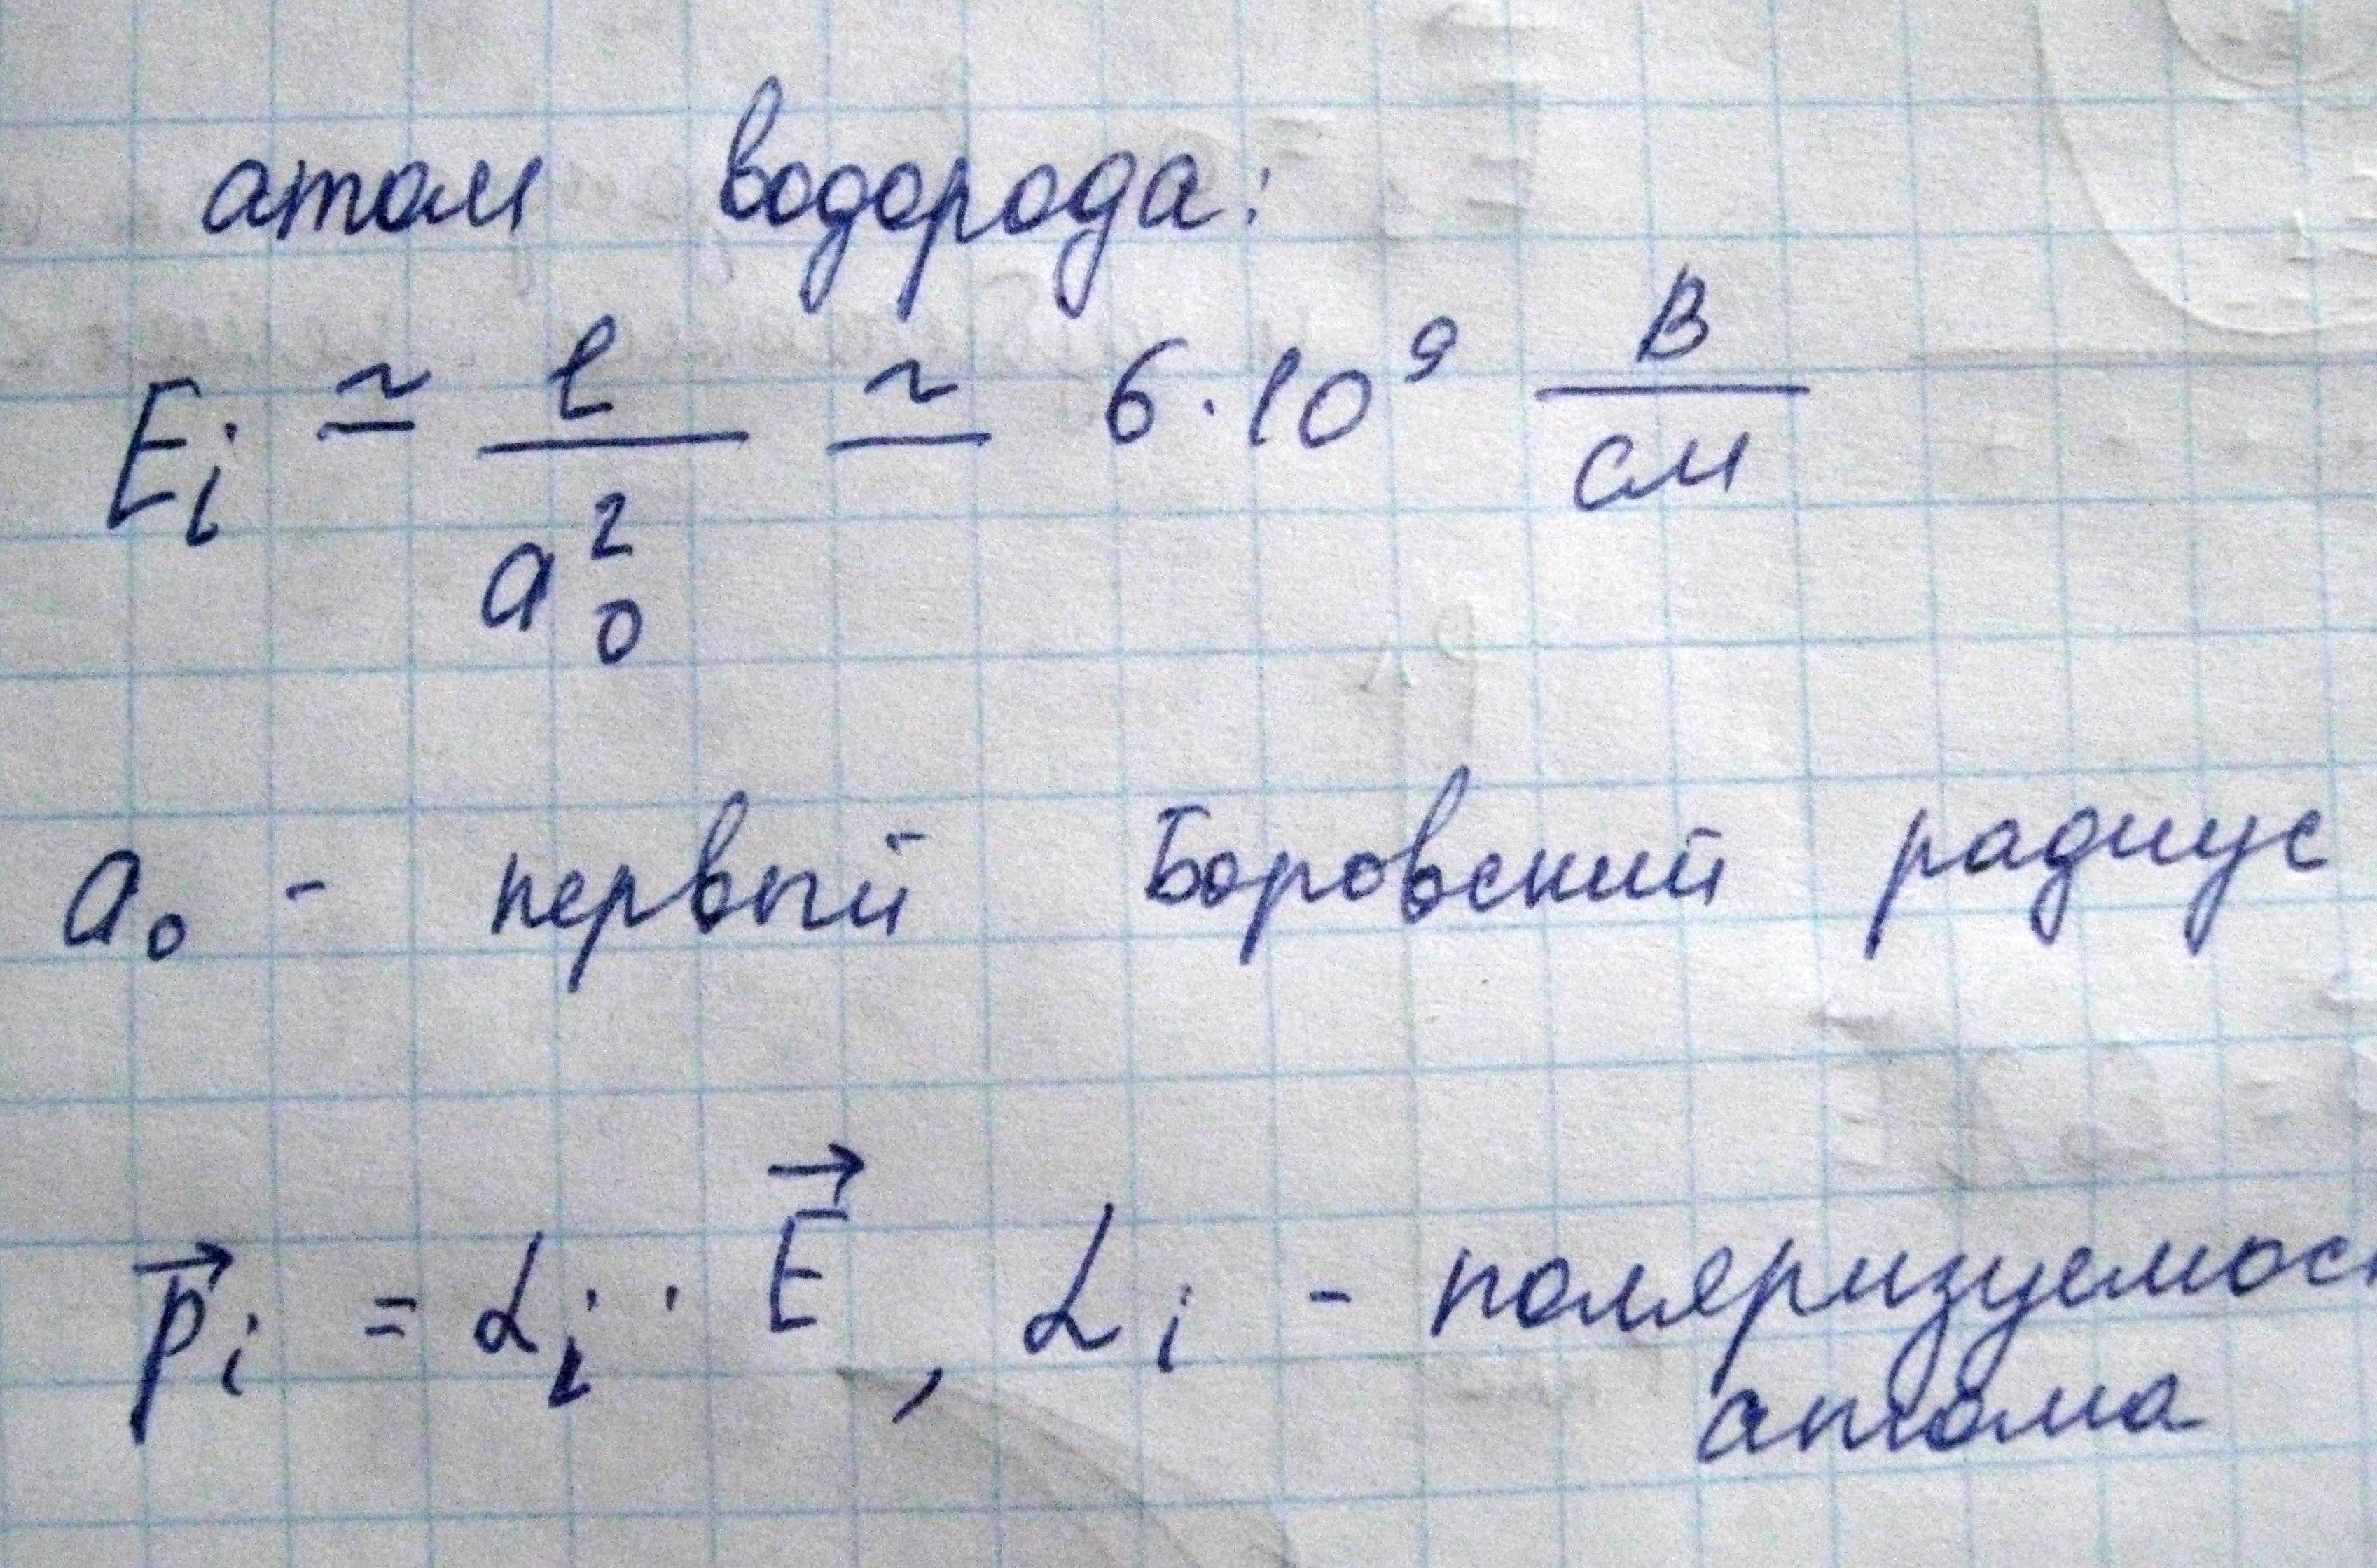 атом водорода:
E_i ≃ e / a_0^2 ≃ 6·10^9 В/см
a_0 - первый Боровский радиус
p⃗_i = α_i · E⃗ , α_i - поляризуемос
атома